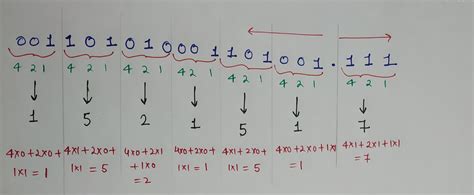 001 101 010 001 101 001 . 111
4 2 1 4 2 1 4 2 1 4 2 1 4 2 1 4 2 1 4 2 1
1 5 2 1 5 1 7
4x0+2x0+ 4x1+2x0+ 4x0+2x1 4x0+2x0+ 4x1+2x0+ 4x0+2x0+1x1 4x1+2x1+1x1
1x1=1 1x1=5 +1x0 1x1=1 1x1=5 =1 =7
=2